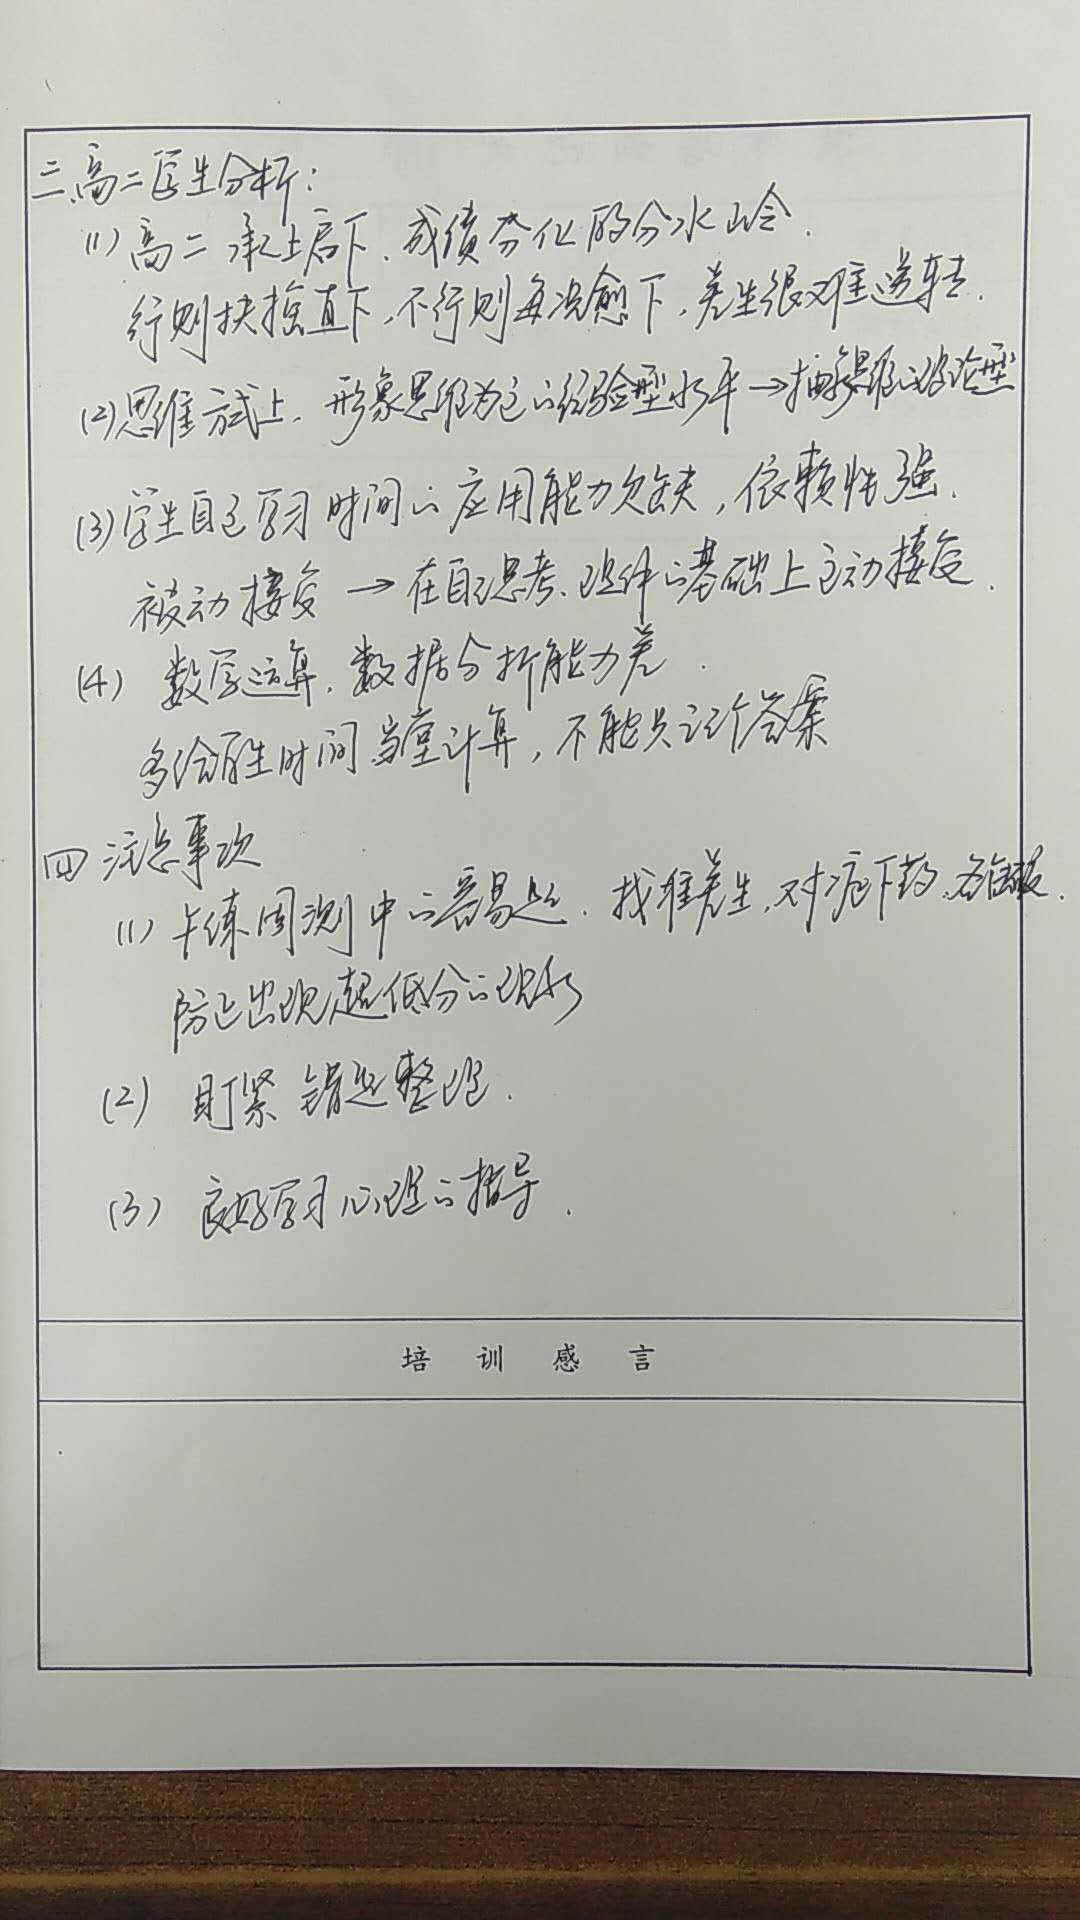 三、高二学生分析:
(1) 高二承上启下、成绩分化的分水岭.
行则扶摇直下,不行则每况愈下,差生很难逆转.
(2) 思维方式上,形象思维为主的经验型水平→抽象思维的理论型
(3) 学生自己学习时间的应用能力欠缺,依赖性强.
被动接受→在自己思考、理解的基础上主动接受.
(4) 数学运算、数据分析能力差.
多给学生时间当堂计算,不能只说个答案
四 注意事项
(1) 午练周测中的容易题.找准差生,对症下药,
防止出现超低分的现象
(2) 盯紧错题整理.
(3) 良好学习心理的指导.
培训感言